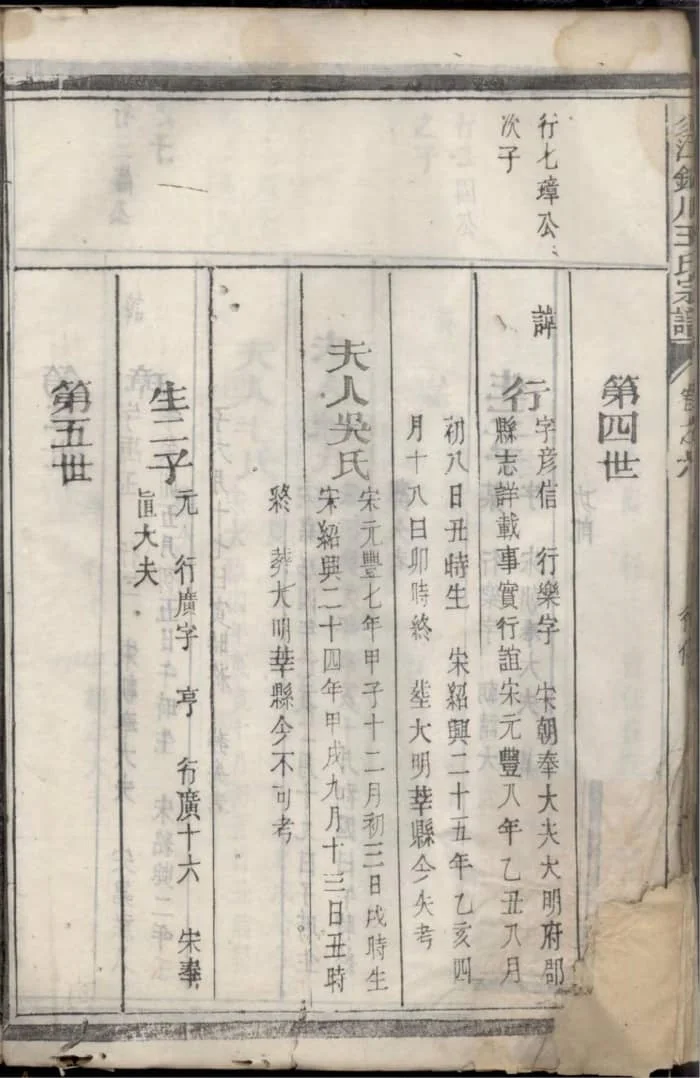 川王氏宗譜
卷之六
行傳
第四世
行七璋公
次子
諱
行
字彦信 行樂字 宋朝奉大夫大明府郡
縣志詳載事實行誼宋元豐八年乙丑八月
初八日丑時生 宋紹興二十五年乙亥四
月十八日卯時終 塟大明莘縣今失考
夫人吳氏
宋元豐七年甲子十二月初三日戌時生
宋紹興二十四年甲戌九月十三日丑時
終 葬大明莘縣今不可考
生二子
元 行廣字 亨 行廣十六 宋奉
直大夫
第五世